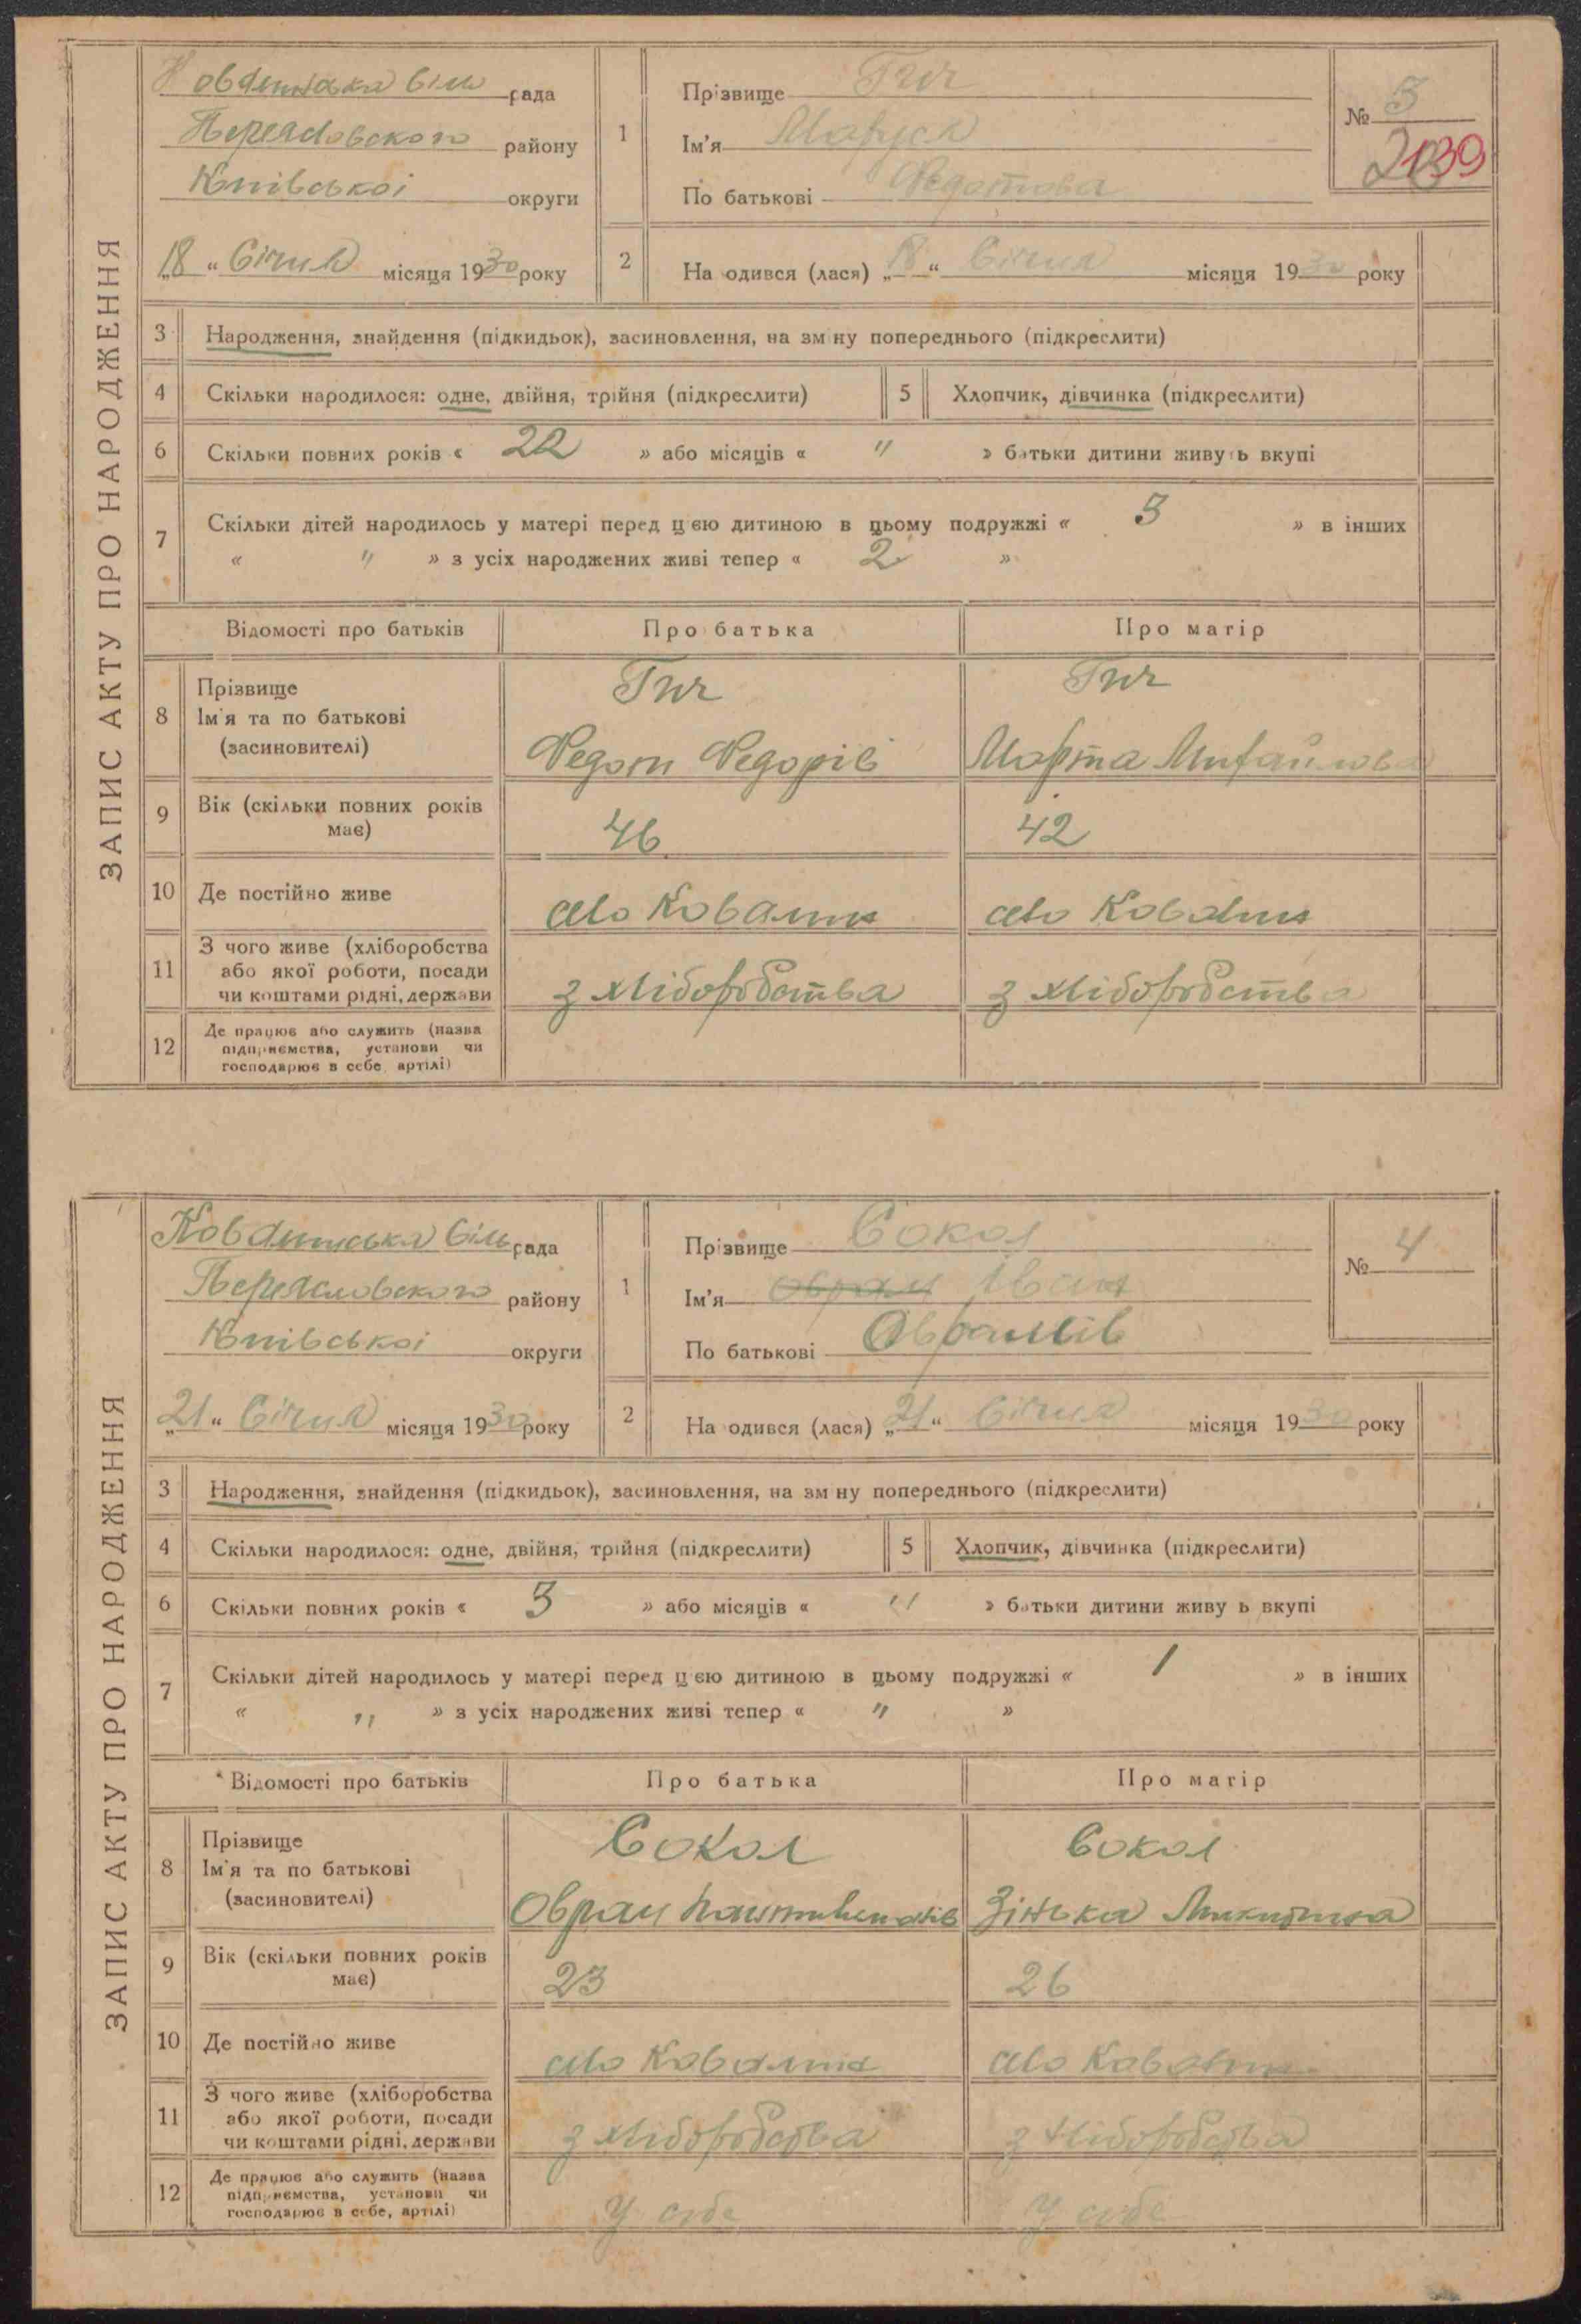 ЗАПИС АКТУ ПРО НАРОДЖЕННЯ
Ковалинська Сіль рада
Переяславского району
Київської округи
„18“ Січня місяця 1930 року
1 Прізвище Гич
Ім'я Маруся
По батькові Федотова
№ 3
139
2 На одився (лася) „18“ Січня місяця 1930 року
3 Народження, знайдення (підкидьок), засиновлення, на зм ну попереднього (підкреслити)
4 Скільки народилося: одне, двійня, трійня (підкреслити) 5 Хлопчик, дівчинка (підкреслити)
6 Скільки повних років « 22 » або місяців « " » батьки дитини живуть вкупі
7 Скільки дітей народилось у матері перед ц єю дитиною в цьому подружжі « 3 » в інших
« " » з усіх народжених живі тепер « 2 »
Відомості про батьків Про батька Про матір
8 Прізвище Гич Гич
Ім'я та по батькові
(засиновителі) Федот Федорів Марта Михайлова
9 Вік (скільки повних років має) 46 42
10 Де постійно живе село Ковалин село Ковалин
11 З чого живе (хліборобства
або якої роботи, посади
чи коштами рідні, держави з хліборобства з хліборобства
12 Де працює або служить (назва
підприємства, установи чи
господарює в себе, артілі)
ЗАПИС АКТУ ПРО НАРОДЖЕННЯ
Ковалинська Сіль рада
Переяславского району
Київської округи
„21“ Січня місяця 1930 року
1 Прізвище Сокол
Ім'я Оврам Іван
По батьковіОврамів
№ 4
2 На одився (лася) „21“ Січня місяця 1930 року
3 Народження, знайдення (підкидьок), засиновлення, на зм ну попереднього (підкреслити)
4 Скільки народилося: одне, двійня, трійня (підкреслити) 5 Хлопчик, дівчинка (підкреслити)
6 Скільки повних років « 3 » або місяців « " » батьки дитини живу ь вкупі
7 Скільки дітей народилось у матері перед ц єю дитиною в цьому подружжі « 1 » в інших
« " » з усіх народжених живі тепер « " »
Відомості про батьків Про батька Про матір
8 Прізвище Сокол Сокол
Ім'я та по батькові
(засиновителі) Оврам Зінька Микитина
9 Вік (скільки повних років має) 23 26
10 Де постійно живе село Ковалин село Ковалин
11 З чого живе (хліборобства
або якої роботи, посади
чи коштами рідні, держави з хліборобства з хліборобства
12 Де працює або служить (назва
підприємства, установи чи
господарює в себе, артілі) У себе У себе